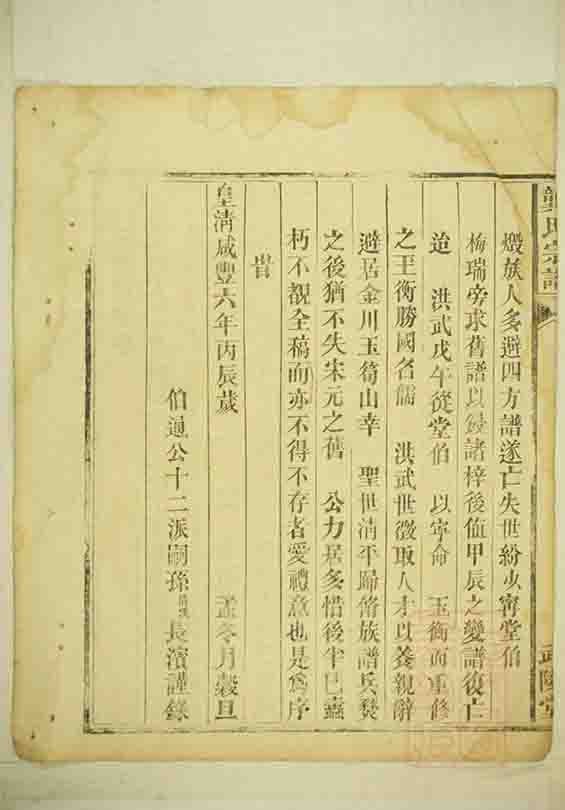 氏宗譜
武陵堂
燬族人多避四方譜遂亡失世紛少寧堂伯
梅瑞旁求舊譜以鋟諸梓後值甲辰之變譜復亡
迨 洪武戊午從堂伯 以寧命 玉衡而重修
之玉衡勝國名儒 洪武世徵取人才以養親辭
避居金川玉笥山幸 聖世清平歸脩族譜兵燹
之後猶不失宋元之舊 公力居多惜後半已蠹
朽不覩全稿而亦不得不存者愛禮意也是為序
旹
皇清咸豐六年丙辰歲 孟冬月穀旦
伯通公十二派嗣孫 長濱謹錄